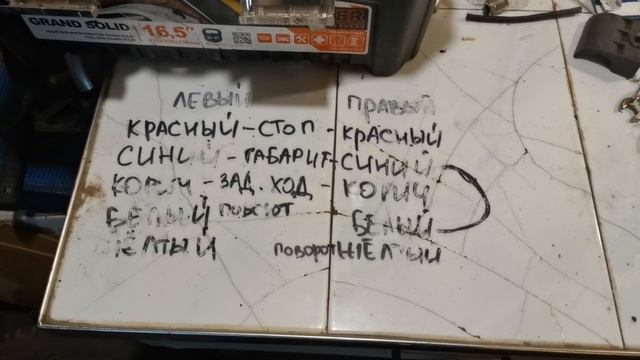 GRAND SOLID 16,5"
ЛЕВЫЙ ПРАВЫЙ
КРАСНЫЙ - СТОП - КРАСНЫЙ
СИНИЙ - ГАБАРИТ - СИНИЙ
КОРИЧ - ЗАД. ХОД - КОРИЧ
БЕЛЫЙ БЕЛЫЙ
ЖЁЛТЫЙ ПОВОРОТ ЖЁЛТЫЙ